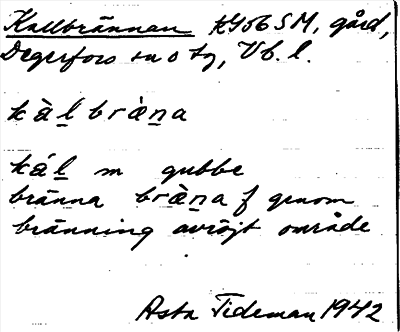 Kallbrännan KG06SM, gård,
Degerfors sn o tg, Vb. l.
kàl̲bràn̲a
kál̲ m gubbe
bränna bràn̲a f genom
bränning avröjt område
Asta Tideman 1942